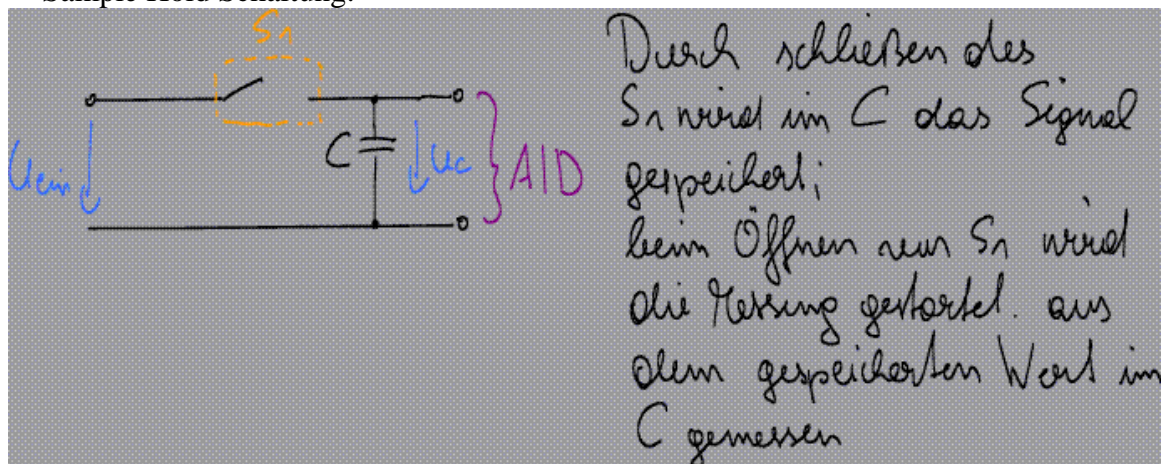 Sample Hold Schaltung:
S1
Uein
C
Uc
A/D
Durch schließen des
S1 wird im C das Signal
gespeichert;
beim Öffnen S1 wird
die Messung gestartet. aus
dem gespeicherten Wert im
C gemessen